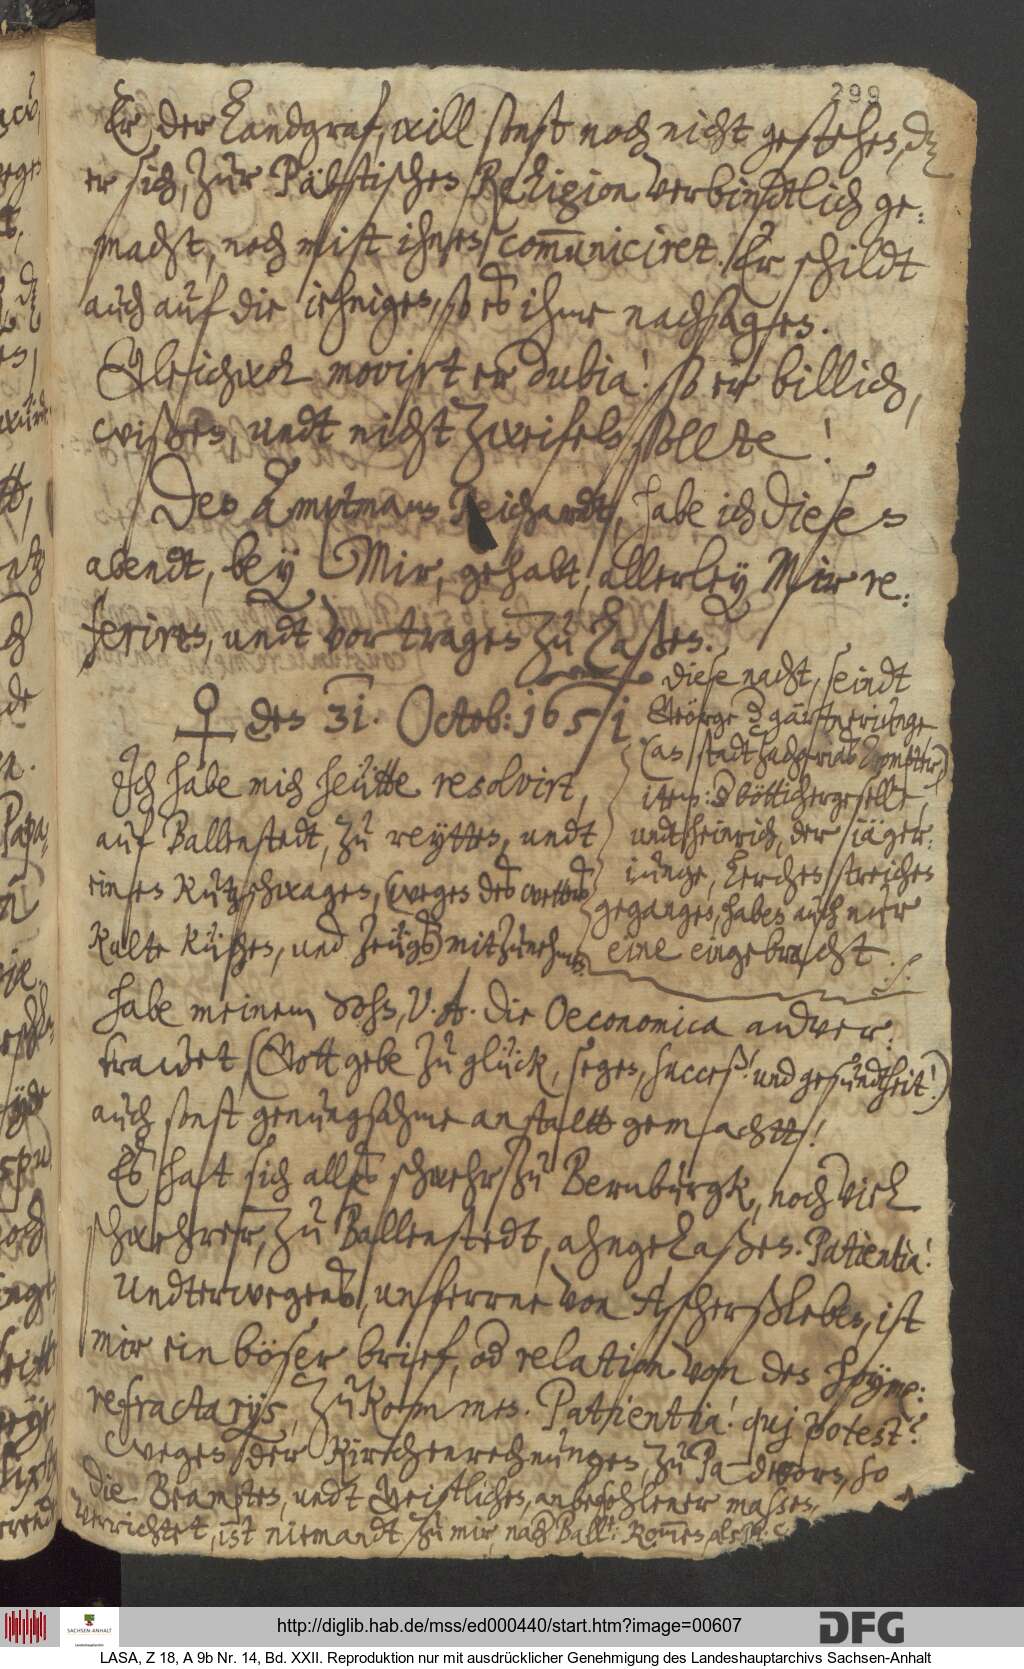 299
Er, der Landgraf, will sonst noch nicht gestehen, dz
er sich, zur Päbstischen Religion verbindtlich ge:
macht, noch mitt ihnen com̄uniciret. Er schildt
auch auf die iehnigen, so es ihme nachsagen.
Gleichwol movirt er dubia! so er billich,
wißen, undt nicht zweifeln sollte!
Den Amptmann Reichardt, habe ich diesen
abendt, bey Mir, gehabt, allerley Mir re:
feriren, undt vortragen zu laßen.
♀ den 31. Octob: 1651
Ich habe mich heütte resolvirt,
auf Ballenstedt, zu reytten, undt
einen Kutzschwagen, (wegen des wetters
kalte küchen, und zeügs) mitzunehmen
diese nacht, seindt
George der gärtnerjunge
(an stadt
item: der böttichergeselle,
undt heinrich, der jäger:
junge, lerchen streichen
gegangen, haben auch nur
eine eingebracht ./.
habe meinem Sohn, V. A. die Oeconomica andver:
trawet, (Gott gebe zu glück, segen, succeß! und gesundtheit!)
auch sonst genungsahme anstaltt gemachtt!
Es hatt sich alles schwehr zu Bernburgk, noch viel
schwehrer, zu Ballenstedt, ahngelaßen. Patientia!
Undterwegens, unferrne von Ascherßleben, ist
mir ein böser brief, od relation von den Hoymi:
refractarijs, zukommen. Patientia! quj potest?
Wegen der Kirchenrechnungen, zu Padeborn, so
die Beampten, undt Geistlichen, anbefohlener maßen,
verrichtet, ist niemandt zu mir, nach Ball: kom̄en, als
http://diglib.hab.de/mss/ed000440/start.htm?image=00607
DFG
SACHSEN-ANHALT
Landeshauptarchiv
LASA, Z 18, A 9b Nr. 14, Bd. XXII. Reproduktion nur mit ausdrücklicher Genehmigung des Landeshauptarchivs Sachsen-Anhalt